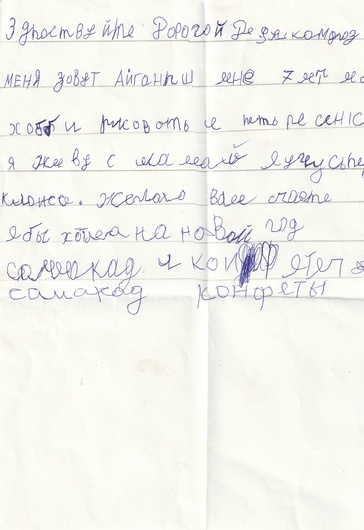 Здраствуйте Дорогой Дедушкамороз
меня зовут Айганыш мне 7 лет мое
хобби рисовать и петь песни
я живу с мамай я учусь
классе. желаю вам счасте
я бы хотела на новый год
самакад и кон
самакад конфеты